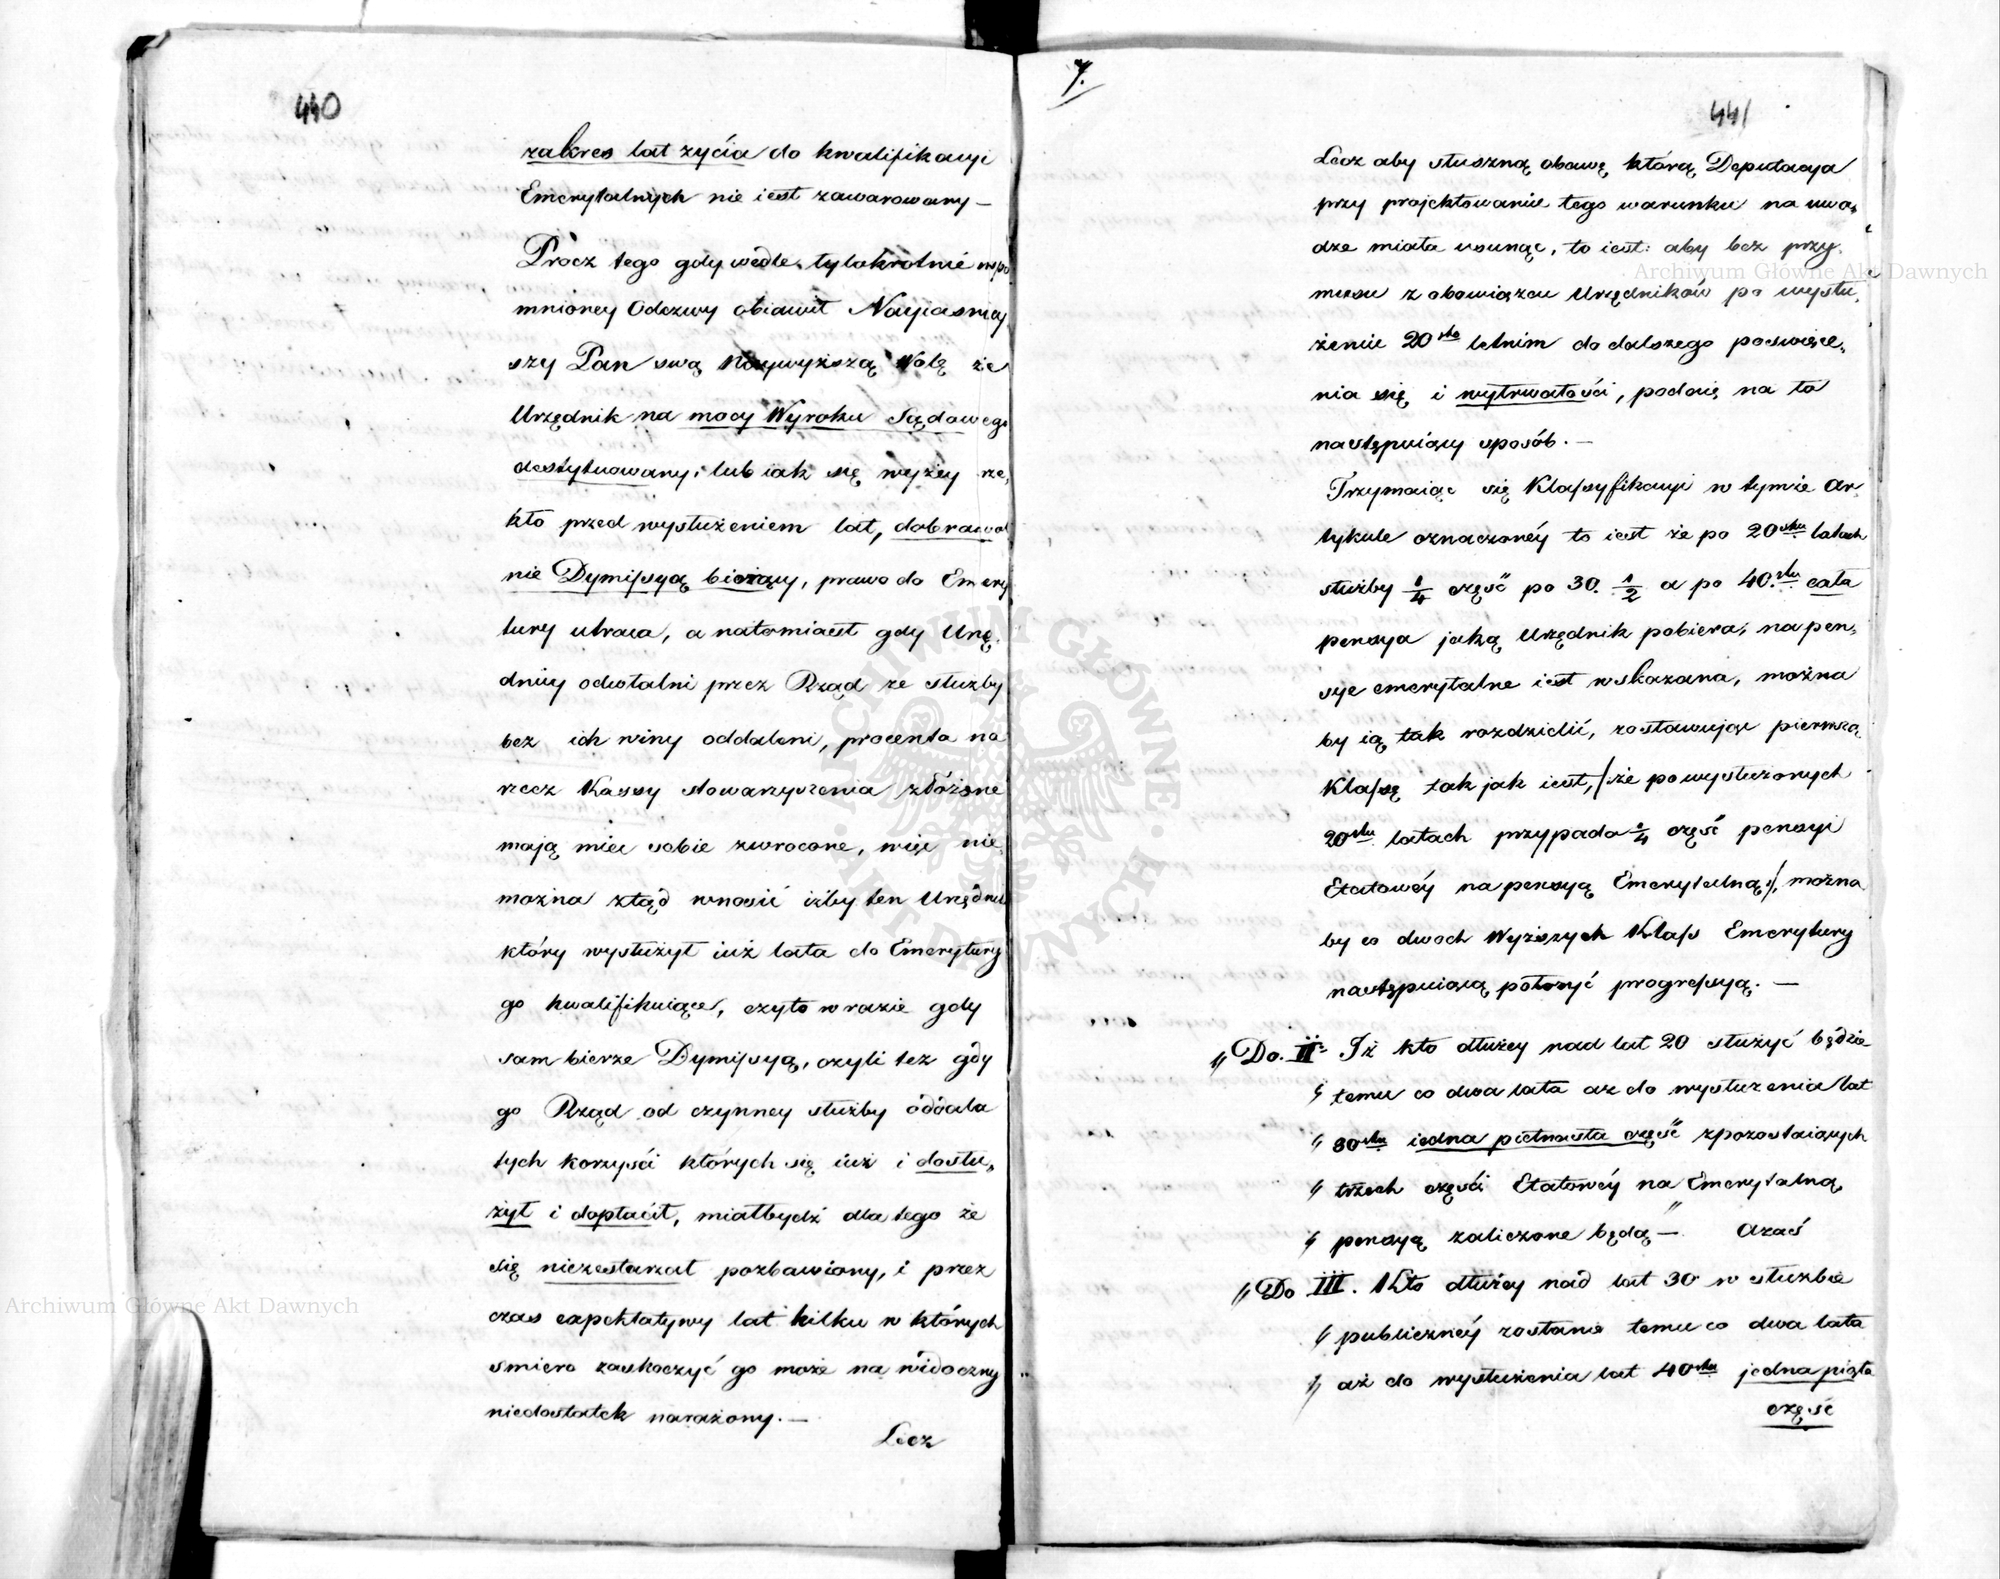 440
zakres lat zycia do kwalifikacyi
Emerytalnych nie iest zawarowany —
Procz tego gdy wedle tylokrotnie wspo
mnioney Odezwy obiawił Nayiasniey
szy Pan swą Naywyższą Wolę że
Urzędnik na mocy Wyroku Sądowego
destytuowany, lub iak się wyżey rze,
kło przed wysłużeniem lat, dobrowol
nie Dymissyą biorący, prawo do Emery
tury utraca, a natomiast gdy Urzę,
dnicy odwołalni przez Rząd ze służby
bez ich winy oddaleni, procenta na
rzecz Kassy stowarzyszenia złożone
mają mieć sobie zwrocone, więc nie,
można ztąd wnosić iżby ten Urzędnik
który wysłużył iuż lata do Emerytury
go kwalifikuiące, czyto w razie gdy
sam bierze Dymissyą, czyli tez gdy
go Rząd od czynney służby oddala
tych korzyści których się iuż i dosłu,
żył i dopłacił, miałbydź dla tego że
się niezestarzał pozbawiony, i przez
czas expektatywy lat kilku w których
smierć zaskoczyć go może na widoczny
niedostatek narażony. —
Lecz
7.
441
Lecz aby słuszną obawę, którą Deputacya
przy projektowaniu tego warunku na uwa,
dze miała usunąć, to iest: aby bez przy,
musu z obowiązcu Urzędników po wysłu,
żeniu 20sto letnim do dalszego poswięce,
nia się i wytrwałości, podaię na to
następuiący sposób. —
Trzymaiąc się Klassyfikacyi w tymże Ar,
tykule oznaczonéy to iest że po 20stu latach
służby 1/4 część po 30. 1/2 a po 40.stu cała
pensya jaką Urzędnik pobiera, na pen,
sye emerytalne iest wskazana, można
by ią tak rozdzielić, zostawując pierwszą
Klassę tak jak iest, /:że po wysłużonych
20stu latach przypada 1/4 część pensyi
Etatowéy na pensyą Emerytalną:/, można
by co dwoch Wyższych Klass Emerytury
następuiącą położyć progressyą. —
„Do. II. Iż kto dłużey nad lat 20 służyć będzie
„ temu co dwa lata aż do wysłużenia lat
„ 30stu iedna pietnasta część zpozostaiących
„ trzech części Etatowéy na Emerytalną
„ pensyą zaliczone będą —" Azaś
„Do III. Kto dłużey nad lat 30 w służbie
„ publicznéy zostanie temu co dwa lata
„ aż do wysłużenia lat 40stu jedna piąta
część
Archiwum Główne Akt Dawnych
Archiwum Główne Akt Dawnych
ARCHIWUM GŁÓWNE · AKT DAWNYCH ·